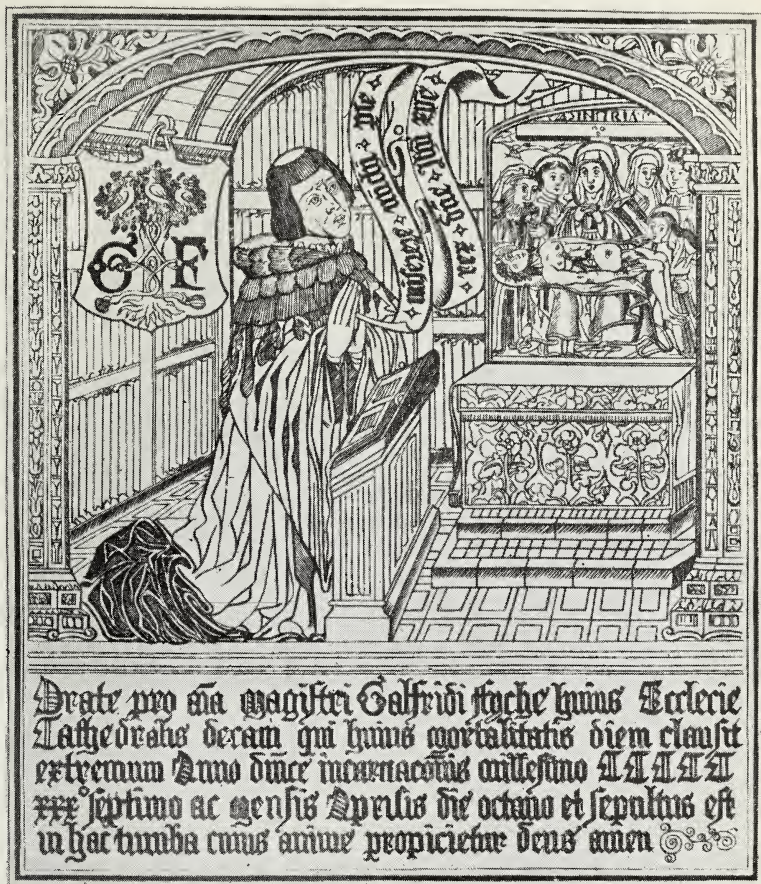 G F
miserere pie
rex Jhu xpe
ASINTRIA
Orate pro aīa magistri Galfridi ffyche huius Ecclecie
Cathedralis decani qui huius mortalitatis diem clausit
extremum Anno dnīce incarnacōnis millesimo CCCCC
xxx° septimo ac mensis Aprilis die octauo et sepultus est
in hac tumba cuius anime propicietur deus amen